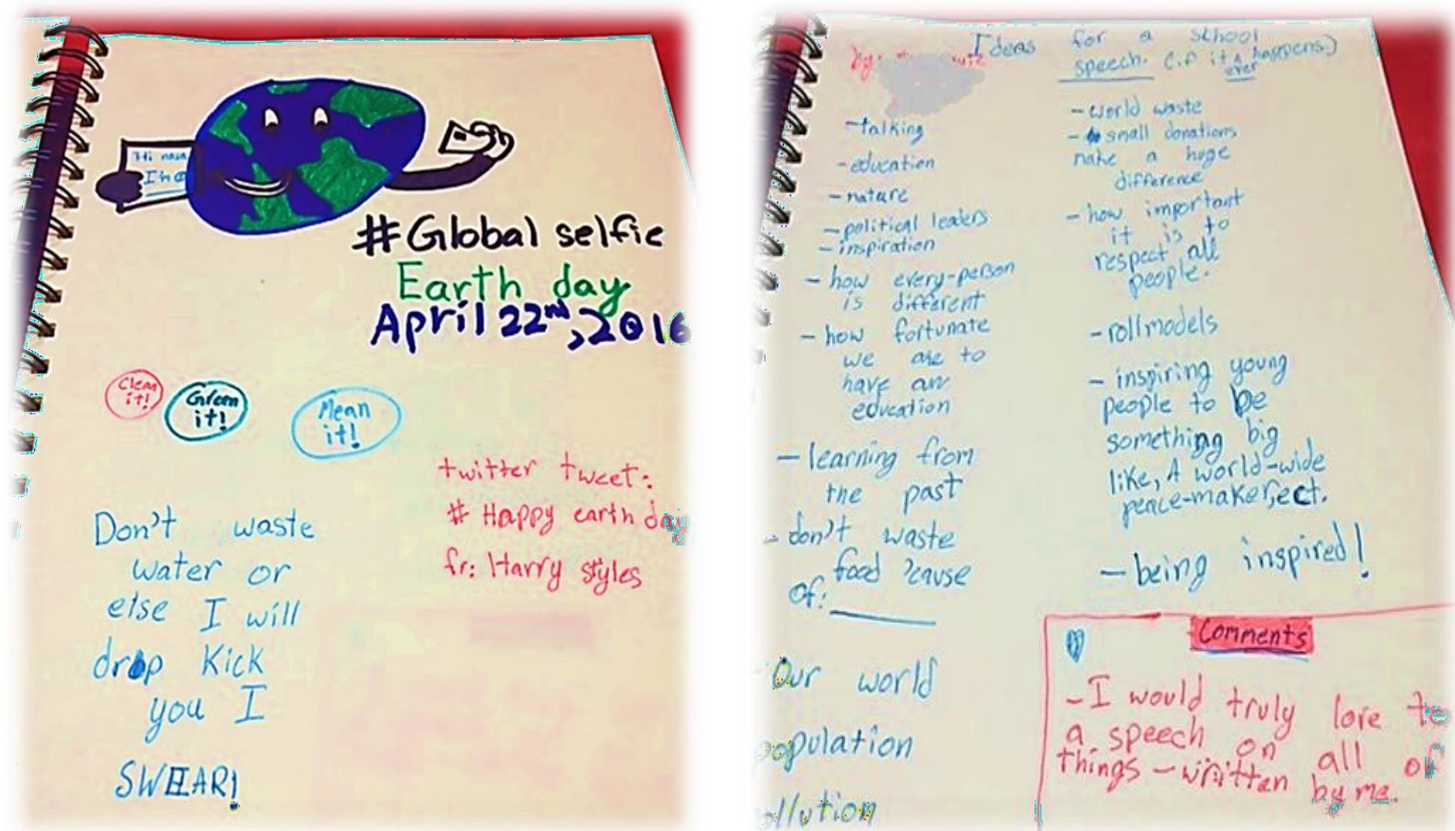 Hi nasa
I ha
#Global selfie
Earth day
April 22nd, 2016
Clean
it!
Green
it!
Mean
it!
twitter tweet:
# Happy earth day
fr: Harry styles
Don't waste
water or
else I will
drop kick
you I
SWEAR!
Ideas for a school
speech. (if it ever happens)
by:
-talking
-education
-nature
-political leaders
-inspiration
- how every-person
is different
- how fortunate
we are to
have an
education
- learning from
the past
- don't waste
food 'cause
of:
Our world
population
ollution
- world waste
- small donations
make a huge
difference
- how important
it is to
respect all
people.
- rollmodels
- inspiring young
people to be
something big
like, A world-wide
peace-maker, ect.
- being inspired!
Comments
- I would truly love to
a speech on all of
things - written by me.